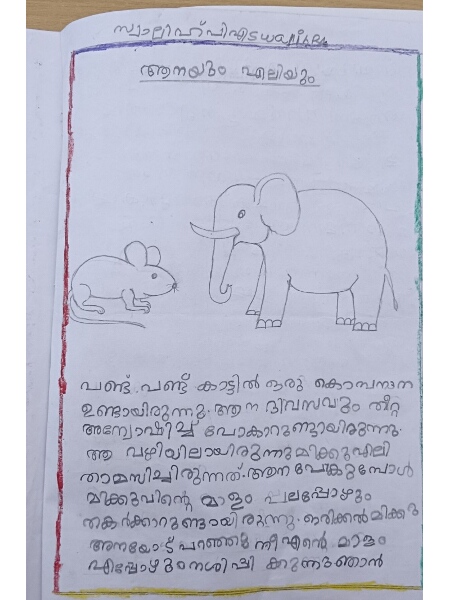 സ്വാലിഹ് പി എ
ആനയും എലിയും
പണ്ട്.. പണ്ട് കാട്ടിൽ ഒരു കൊമ്പനാന
ഉണ്ടായിരുന്നു. ആന ദിവസവും തീറ്റ
അന്വേഷിച്ച് പോകാറുണ്ടായിരുന്നു.
ആ വഴിയിലായിരുന്നു മിക്കുഎലി
താമസിച്ചിരുന്നത്. ആന പോകുമ്പോൾ
മിക്കുവിന്റെ മാളം പലപ്പോഴും
തകർക്കാറുണ്ടായിരുന്നു. ഒരിക്കൽ മിക്കു
ആനയോട് പറഞ്ഞു നീ എന്റെ മാളം
എപ്പോഴും നശിപ്പി ക്കുന്നു ഞാൻ